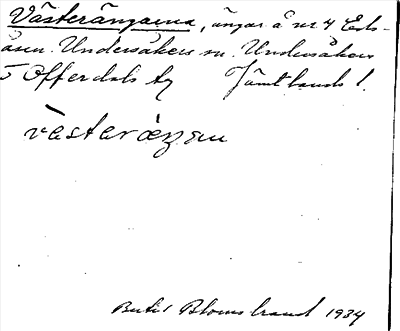 Västerängarna, ängar å nr 4 Eds-
åsen. Undersåkers sn. Undersåkers
o Offerdals tg Jämtlands l.
västeräŋen
Bertil Blomstrand 1934